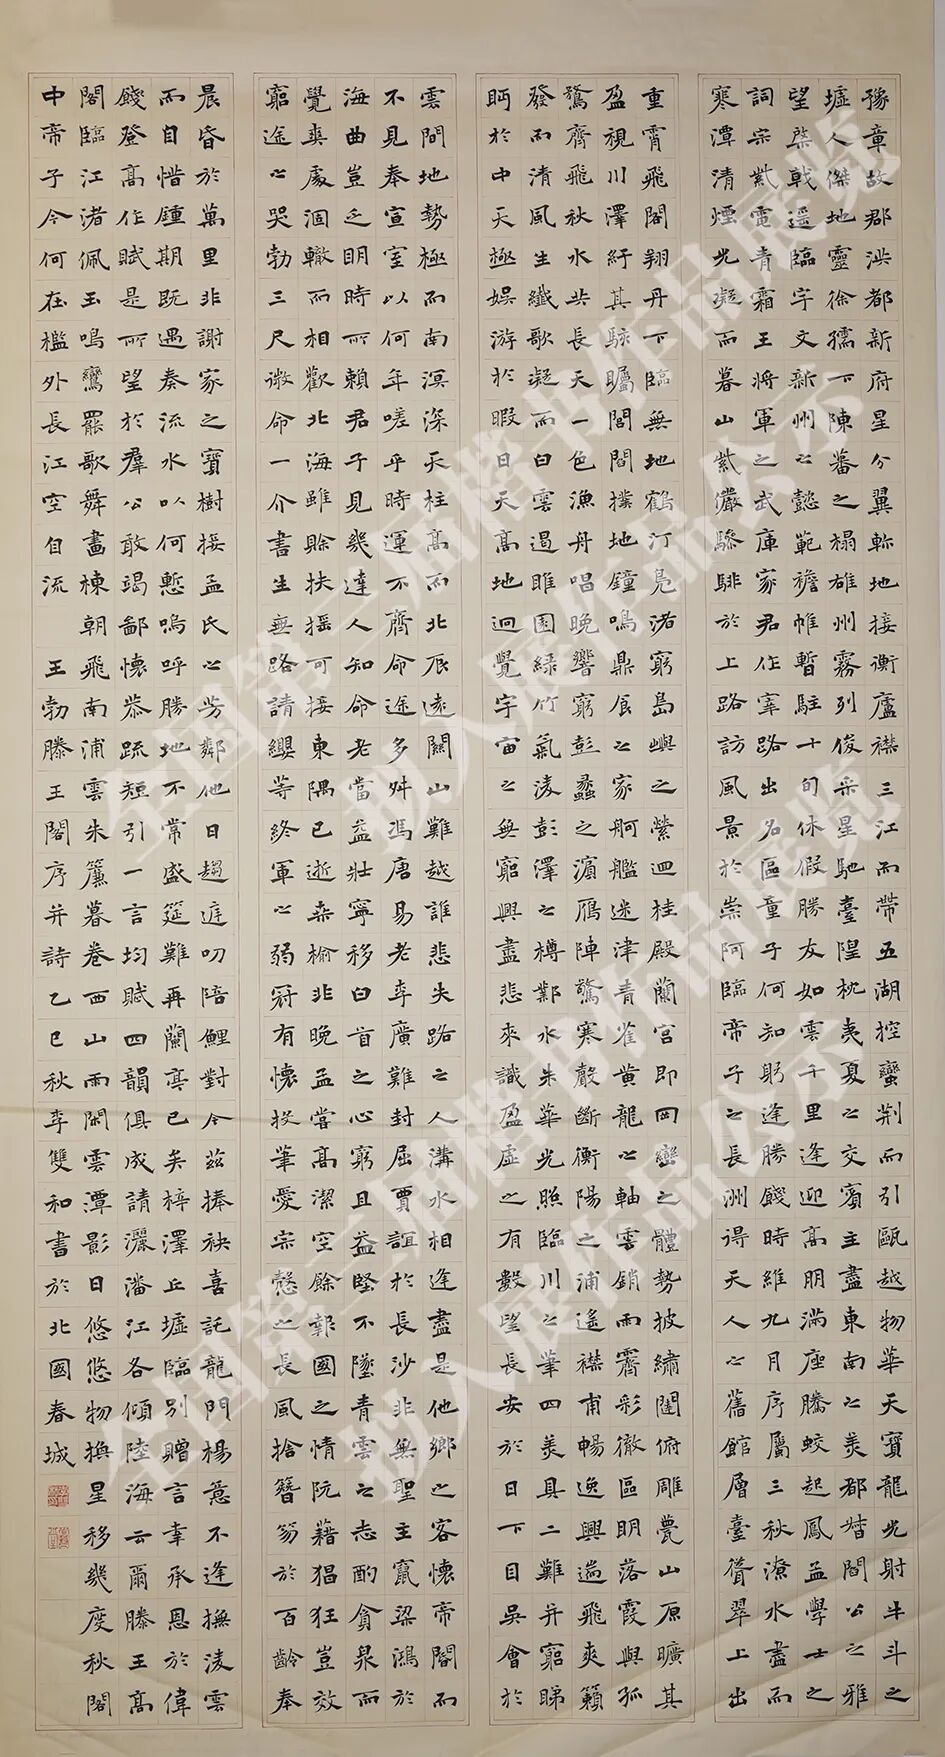 豫章故郡洪都新府星分翼軫地接衡廬襟三江而帶五湖控蠻荊而引甌越物華天寶龍光射牛斗之
墟人傑地靈徐孺下陳蕃之榻雄州霧列俊采星馳臺隍枕夷夏之交賓主盡東南之美都督閻公之雅
望棨戟遥臨宇文新州之懿範襜帷暫駐十旬休假勝友如雲千里逢迎高明滿座騰蛟起鳳孟學士之
詞宗紫電青霜王將軍之武庫家君作宰路出名區童子何知躬逢勝餞時維九月序屬三秋潦水盡而
寒潭清煙光凝而暮山紫儼驂騑於上路訪風景於崇阿臨帝子之長洲得天人之舊館層臺聳翠上出
重霄飛閣翔丹下臨無地鶴汀鳧渚窮島嶼之縈迴桂殿蘭宮即岡巒之體勢披繡闥俯雕甍山原曠其
盈視川澤紆其駭矚閭閻撲地鐘鳴鼎食之家舸艦迷津青雀黃龍之軸雲銷雨霽彩徹區明落霞與孤
鶩齊飛秋水共長天一色漁舟唱晚響窮彭蠡之濱雁陣驚寒聲斷衡陽之浦遥襟甫暢逸興遄飛爽籟
發而清風生纖歌凝而白雲遏睢園綠竹氣凌彭澤之樽鄴水朱華光照臨川之筆四美具二難并窮睇
眄於中天極娛游於暇日天高地迥覺宇宙之無窮興盡悲來識盈虛之有數望長安於日下目吳會於
雲間地勢極而南溟深天柱高而北辰遠關山難越誰悲失路之人溝水相逢盡是他鄉之客懷帝閽而
不見奉宣室以何年嗟乎時運不齊命途多舛馮唐易老李廣難封屈賈誼於長沙非無聖主竄梁鴻於
海曲豈乏明時所賴君子見幾達人知命老當益壯寧移白首之心窮且益堅不墜青雲之志酌貪泉而
覺爽處涸轍而相歡北海雖賒扶搖可接東隅已逝桑榆非晚孟嘗高潔空餘報國之情阮藉猖狂豈效
窮途之哭勃三尺微命一介書生無路請纓等終軍之弱冠有懷投筆愛宗慤之長風捨簪笏於百齡奉
晨昏於萬里非謝家之寶樹接孟氏之芳鄰他日趨庭叨陪鯉對今茲捧袂喜託龍門楊意不逢撫凌雲
而自惜鍾期既遇奏流水以何慙嗚呼勝地不常盛筵難再蘭亭已矣梓澤丘墟臨別贈言幸承恩於偉
餞登高作賦是所望於群公敢竭鄙懷恭疏短引一言均賦四韻俱成請灑潘江各傾陸海云爾滕王高
閣臨江渚佩玉鳴鸞罷歌舞畫棟朝飛南浦雲朱簾暮卷西山雨閑雲潭影日悠悠物換星移幾度秋閣
中帝子今何在檻外長江空自流 王勃滕王閣序并詩乙巳秋李雙和書於北國春城
全国第三届楷书作品展览
拟入展作品公示
全国第三届楷书作品展览
拟入展作品公示